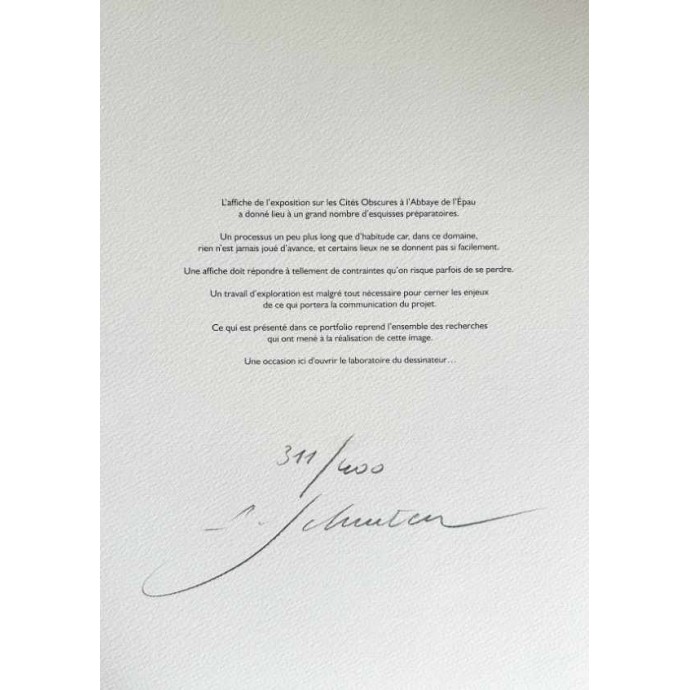 L'affiche de l'exposition sur les Cités Obscures à l'Abbaye de l'Épau
a donné lieu à un grand nombre d'esquisses préparatoires.
Un processus un peu plus long que d'habitude car, dans ce domaine,
rien n'est jamais joué d'avance, et certains lieux ne se donnent pas si facilement.
Une affiche doit répondre à tellement de contraintes qu'on risque parfois de se perdre.
Un travail d'exploration est malgré tout nécessaire pour cerner les enjeux
de ce qui portera la communication du projet.
Ce qui est présenté dans ce portfolio reprend l'ensemble des recherches
qui ont mené à la réalisation de cette image.
Une occasion ici d'ouvrir le laboratoire du dessinateur…
311/400
Schuiten